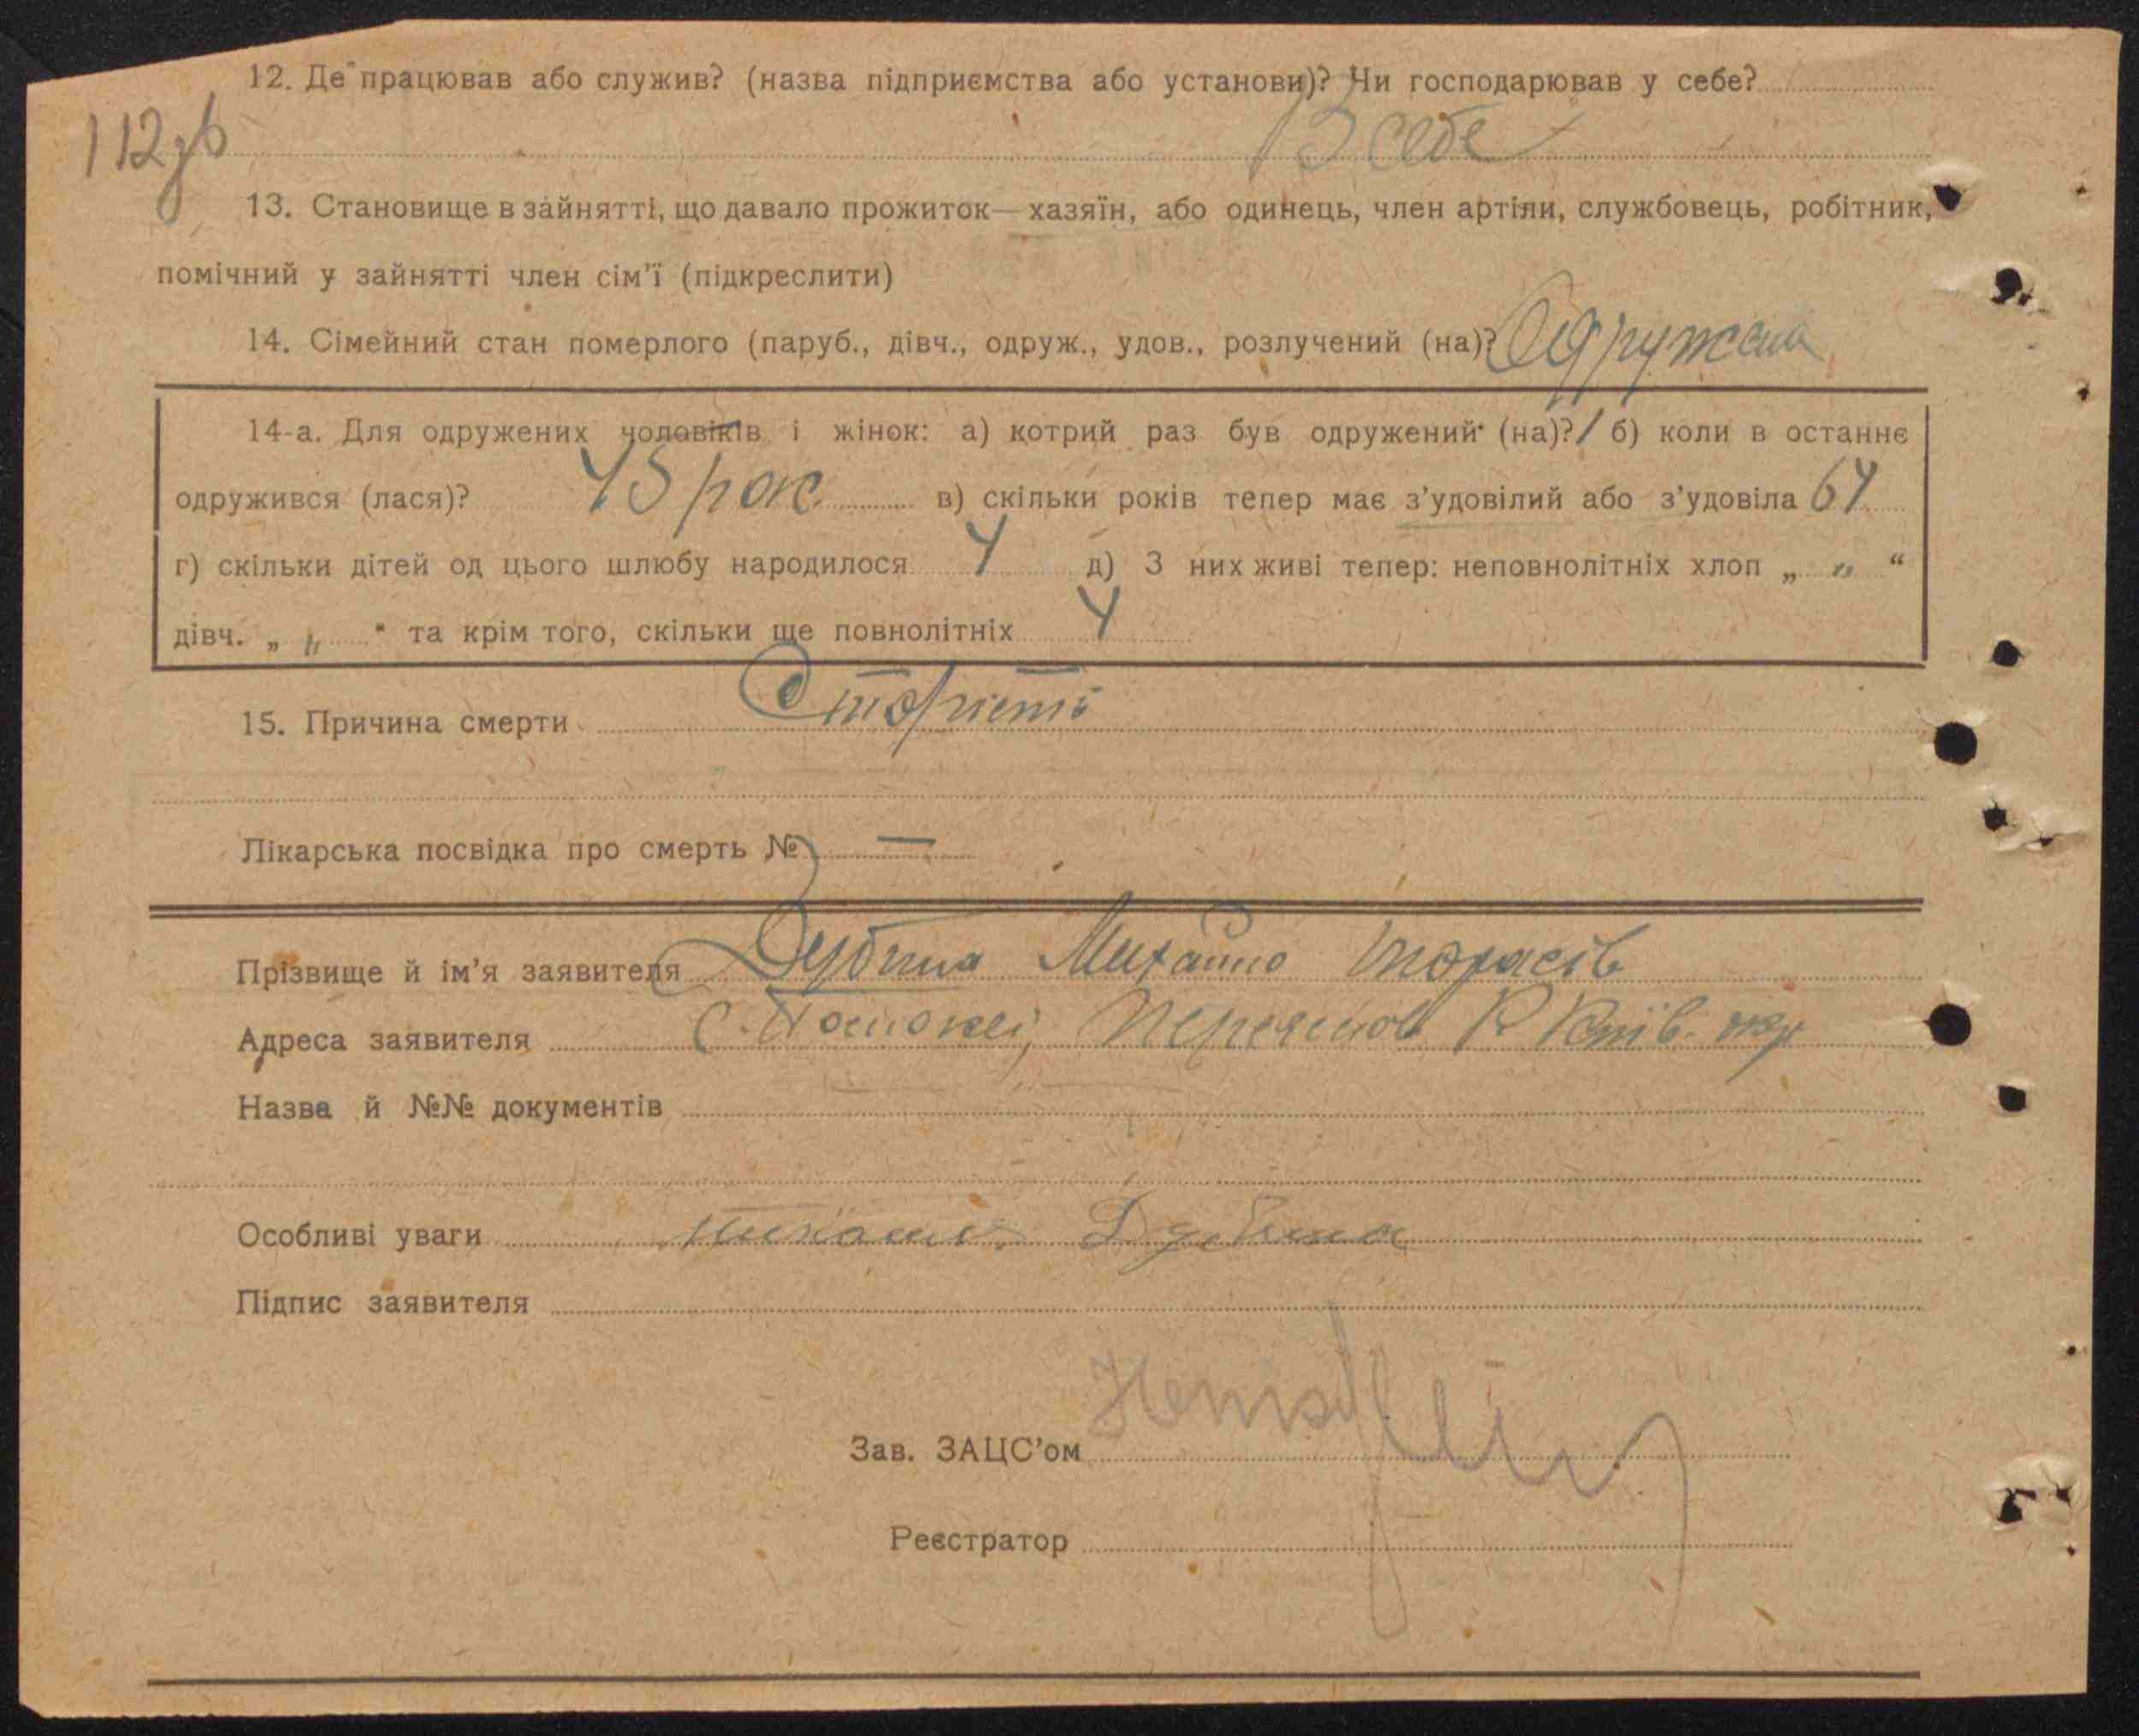 12. Де працював або служив? (назва підприємства або установи)? Чи господарював у себе?
112зв В себе
13. Становище в зайнятті, що давало прожиток — хазяїн, або одинець, член артіли, службовець, робітник,
помічний у зайнятті член сім'ї (підкреслити)
14. Сімейний стан померлого (паруб., дівч., одруж., удов., розлучений (на)? Одружена
14-а. Для одружених чоловіків і жінок: а) котрий раз був одружений (на)? 1 б) коли в останнє
одружився (лася)? 45 рок. в) скільки років тепер має з'удовілий або з'удовіла 64
г) скільки дітей од цього шлюбу народилося 4 д) З них живі тепер: неповнолітніх хлоп „ „ “
дівч. „ „ “ та крім того, скільки ще повнолітніх 4
15. Причина смерти Старість
Лікарська посвідка про смерть № —
Прізвище й ім'я заявителя Дубина Михайло Тарасів
Адреса заявителя С. Переяслов Р Київ. окр
Назва й №№ документів
Особливі уваги Михайло Дубина
Підпис заявителя
Зав. ЗАЦС'ом
Реєстратор